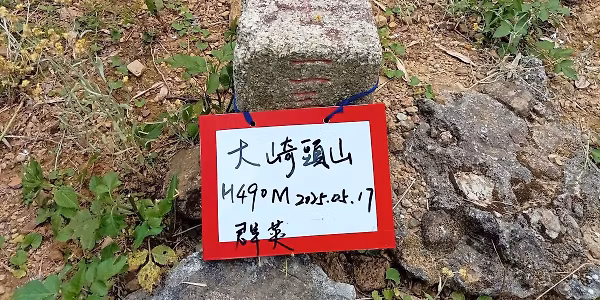 大崎頭山
H490M 2025.05.17
群英